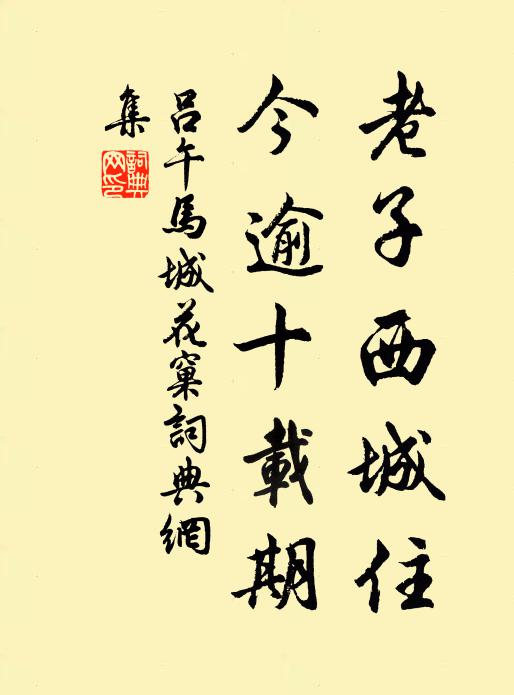 老子西城住
今逾十載期
吕午馬城花窠詞典網
集
詞典網印